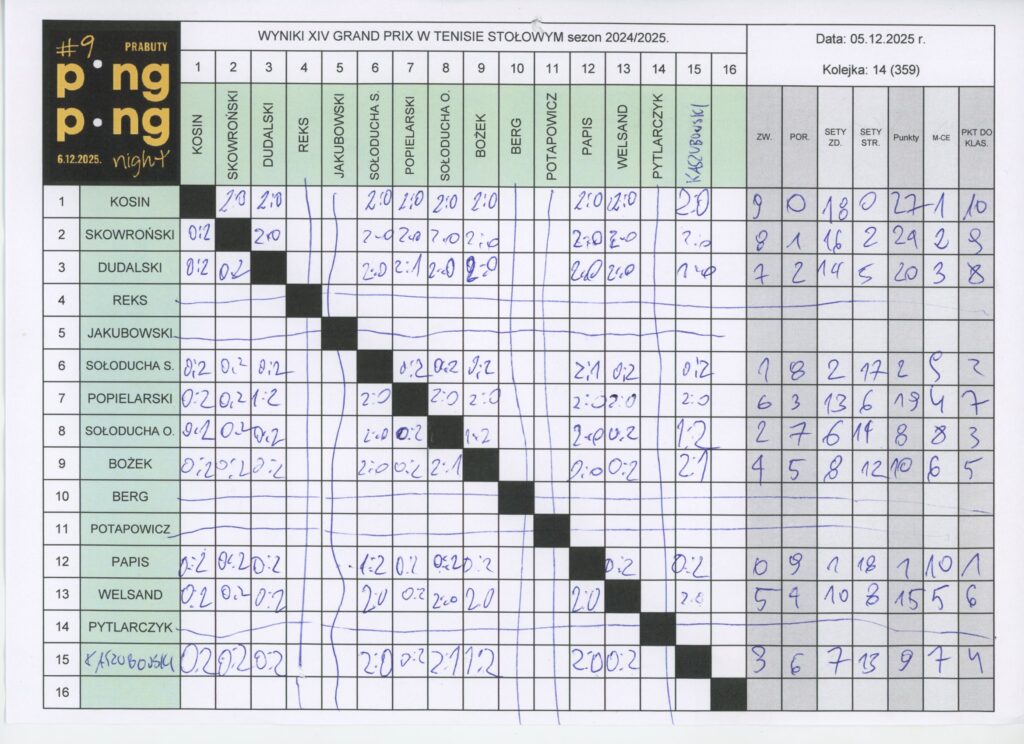 #9 PRABUTY
ping
pong
6.12.2025. night
WYNIKI XIV GRAND PRIX W TENISIE STOŁOWYM sezon 2024/2025.
Data: 05.12.2025 r.
Kolejka: 14 (359)
1 2 3 4 5 6 7 8 9 10 11 12 13 14 15 16
KOSIN SKOWROŃSKI DUDALSKI REKS JAKUBOWSKI SOŁODUCHA S. POPIELARSKI SOŁODUCHA O. BOŻEK BERG POTAPOWICZ PAPIS WELSAND PYTLARCZYK KASZUBOWSKI
ZW. POR. SETY ZD. SETY STR. Punkty M-CE PKT DO KLAS.
1 KOSIN 2:0 2:0 2:0 2:0 2:0 2:0 2:0 2:0 2:0 9 0 18 0 27 1 10
2 SKOWROŃSKI 0:2 2:0 2:0 2:0 2:0 2:0 2:0 2:0 2:0 8 1 16 2 24 2 9
3 DUDALSKI 0:2 0:2 2:0 2:1 2:0 2:0 2:0 2:0 7 2 14 5 20 3 8
4 REKS
5 JAKUBOWSKI
6 SOŁODUCHA S. 0:2 0:2 0:2 0:2 0:2 0:2 2:1 0:2 0:2 1 8 2 17 2 9 2
7 POPIELARSKI 0:2 0:2 1:2 2:0 2:0 2:0 2:0 2:0 2:0 6 3 13 6 19 4 7
8 SOŁODUCHA O. 0:2 0:2 0:2 2:0 0:2 1:2 2:0 0:2 1:2 2 7 6 14 8 8 3
9 BOŻEK 0:2 0:2 0:2 2:0 0:2 2:1 2:0 0:2 2:1 4 5 8 12 10 6 5
10 BERG
11 POTAPOWICZ
12 PAPIS 0:2 0:2 0:2 1:2 0:2 0:2 0:2 0:2 0:2 0 9 1 18 1 10 1
13 WELSAND 0:2 0:2 0:2 2:0 0:2 2:0 2:0 2:0 2:0 5 4 10 8 15 5 6
14 PYTLARCZYK
15 KASZUBOWSKI 0:2 0:2 0:2 2:0 0:2 2:1 1:2 2:0 0:2 3 6 7 13 9 7 4
16